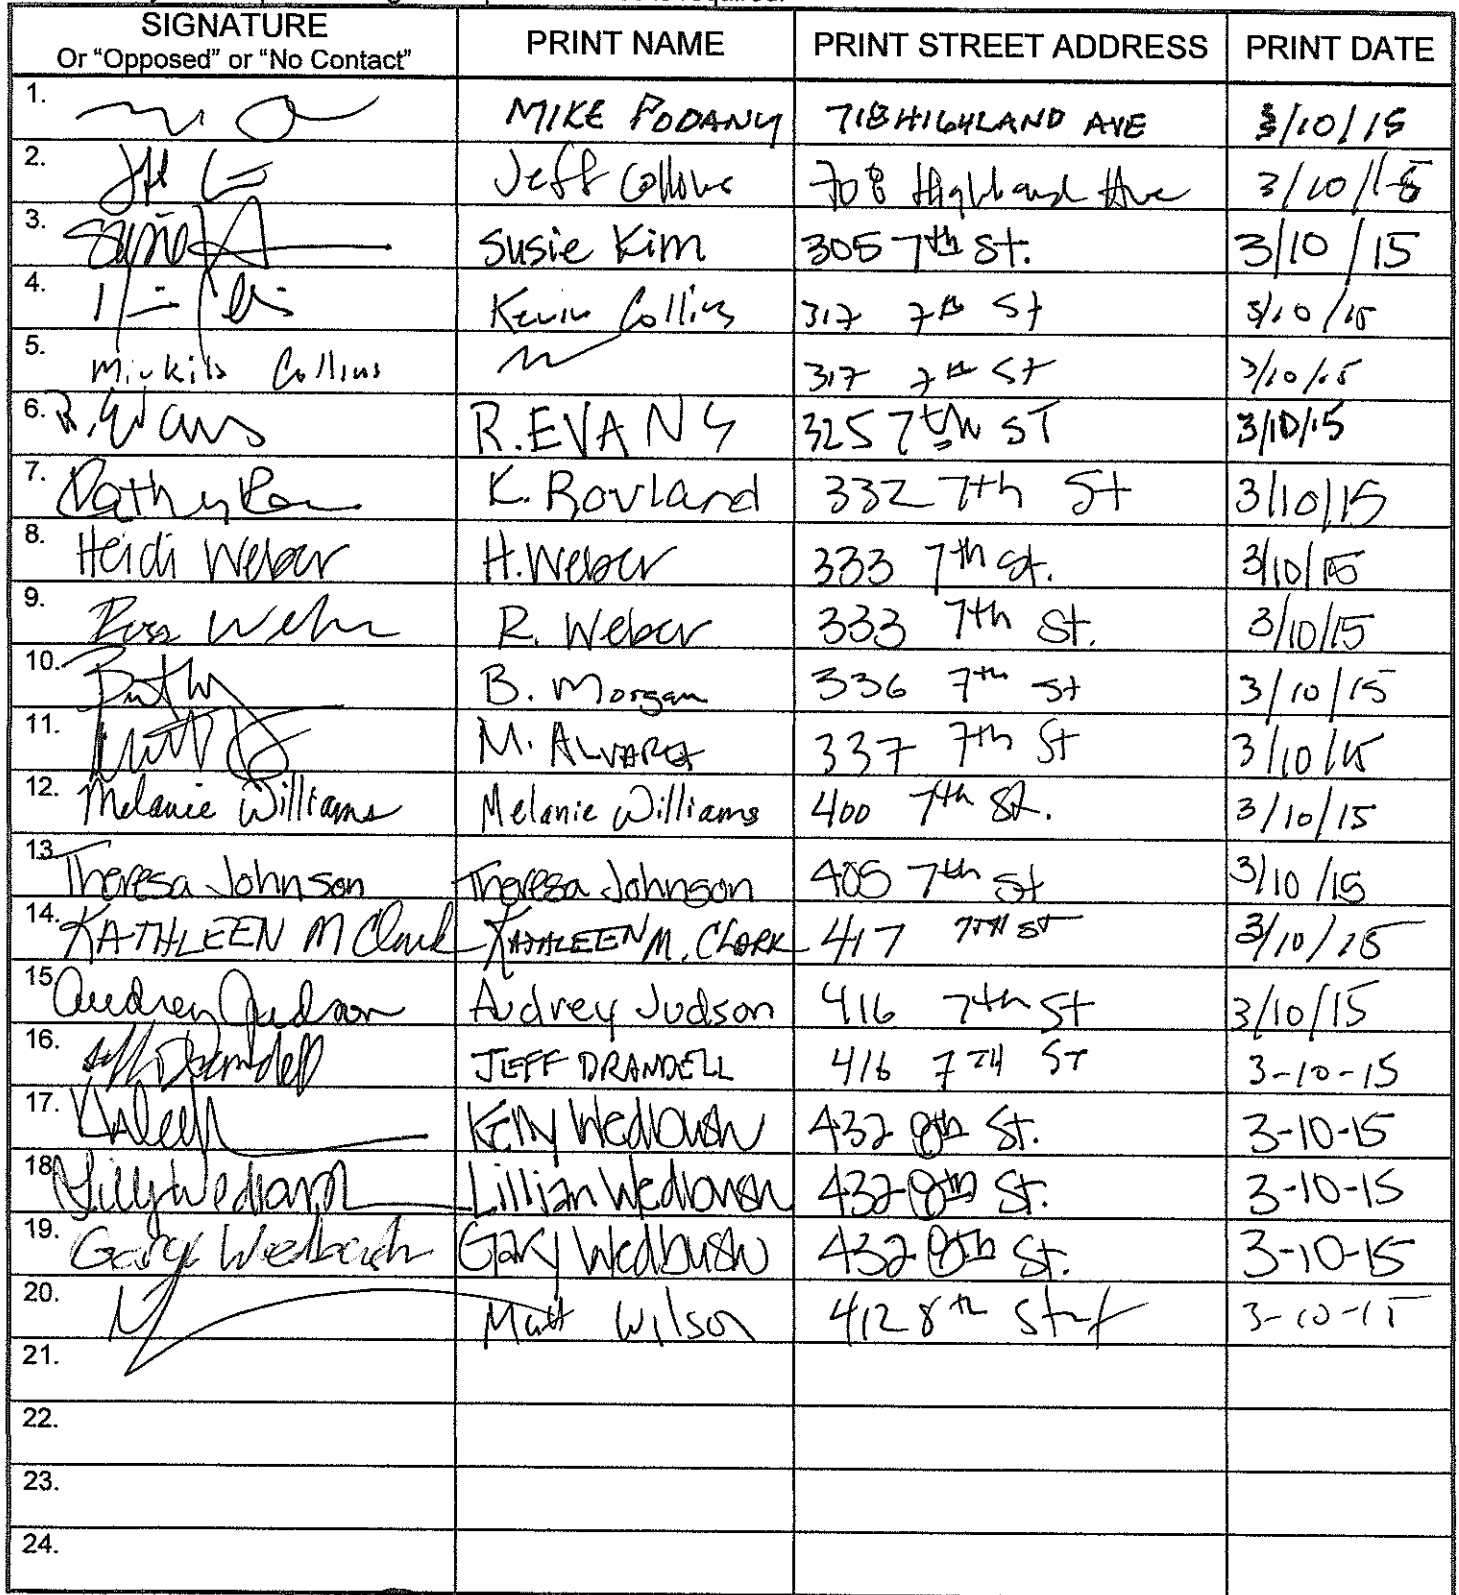 required.
SIGNATURE PRINT NAME PRINT STREET ADDRESS PRINT DATE
Or "Opposed" or "No Contact"
1. MIKE PODANY 718 HIGHLAND AVE 3/10/15
2. Jeff 708 Highland Ave 3/10/15
3. Susie Kim 305 7th St. 3/10/15
4. Kevin Collins 317 7th St 3/10/15
5. Collins 317 7th St 3/10/15
6. R. Evans R. EVANS 325 7th ST 3/10/15
7. K. Rovland 332 7th St 3/10/15
8. Heidi Weber H. Weber 333 7th St. 3/10/15
9. R. Weber 333 7th St. 3/10/15
10. B. Morgan 336 7th St 3/10/15
11. M. 337 7th St 3/10/15
12. Melanie Williams Melanie Williams 400 7th St. 3/10/15
13. Theresa Johnson Theresa Johnson 405 7th St 3/10/15
14. KATHLEEN M Clark KATHLEEN M. CLARK 417 7TH ST 3/10/15
15. Audrey Judson Audrey Judson 416 7th St 3/10/15
16. JEFF DRANDELL 416 7TH ST 3-10-15
17. Kelly Wedbush 432 8th St. 3-10-15
18. Lilly Wedbush Lillian Wedbush 432 8th St. 3-10-15
19. Gary Wedbush Gary Wedbush 432 8th St. 3-10-15
20. Matt Wilson 412 8th Street 3-10-15
21.
22.
23.
24.